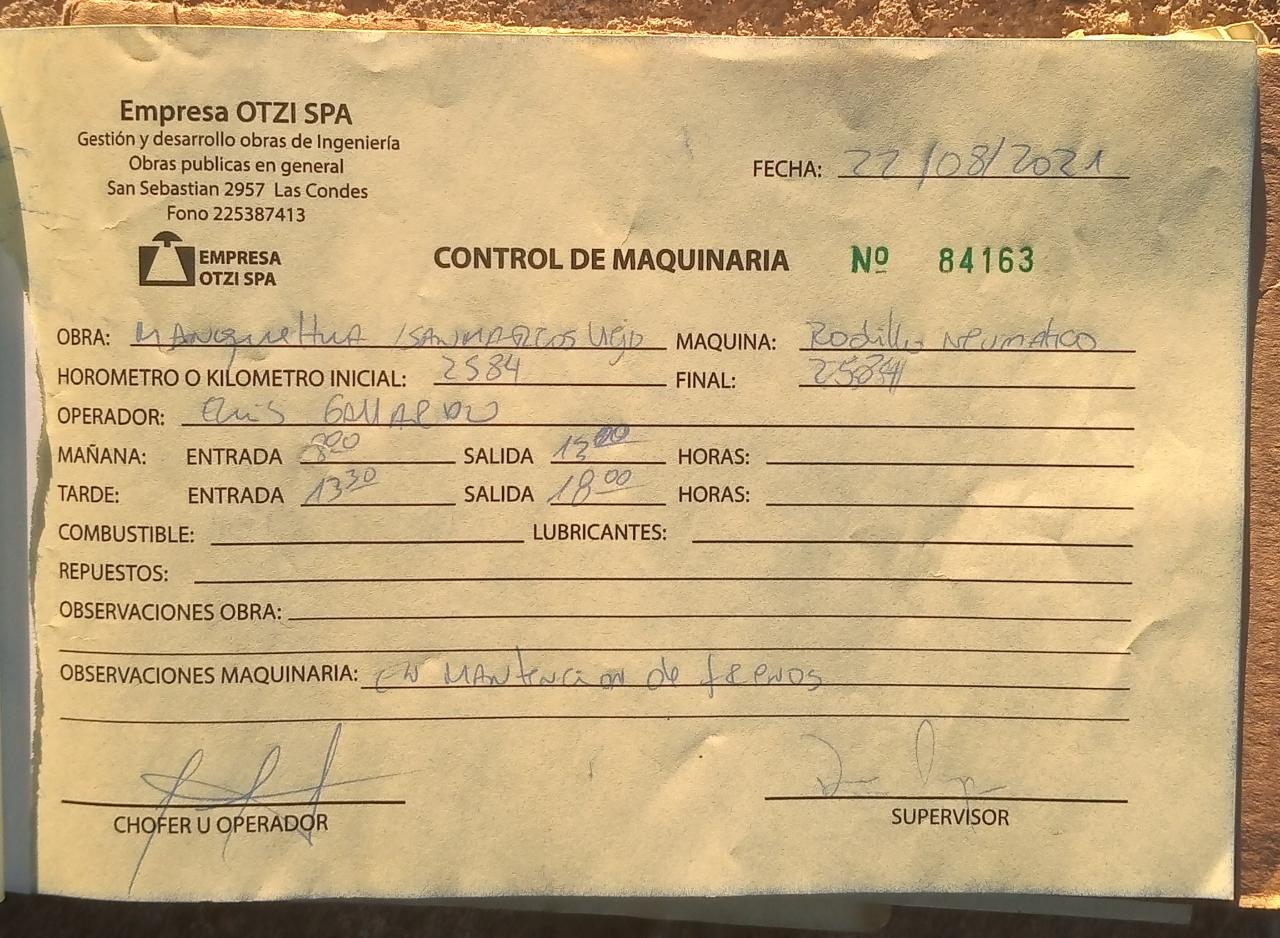 Empresa OTZI SPA
Gestión y desarrollo obras de Ingeniería
Obras publicas en general
San Sebastian 2957 Las Condes
Fono 225387413
EMPRESA
OTZI SPA
FECHA: 22/08/2021
CONTROL DE MAQUINARIA Nº 84163
OBRA: MAQUINA: Rodillo Neumatico
HOROMETRO O KILOMETRO INICIAL: 2584 FINAL:
OPERADOR: GALLARDO
MAÑANA: ENTRADA 800 SALIDA 1300 HORAS:
TARDE: ENTRADA 1330 SALIDA 1800 HORAS:
COMBUSTIBLE: LUBRICANTES:
REPUESTOS:
OBSERVACIONES OBRA:
OBSERVACIONES MAQUINARIA: EN MANtencion de frenos
CHOFER U OPERADOR SUPERVISOR